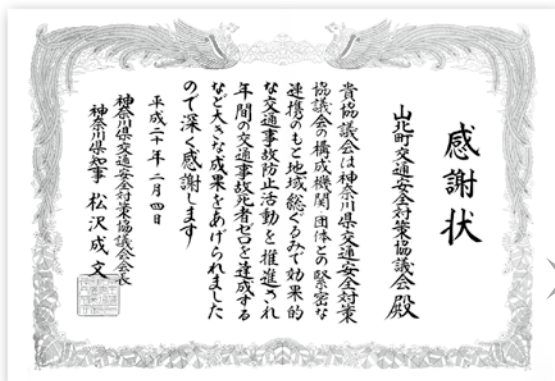 感謝状
山北町交通安全対策協議会殿
貴協議会は神奈川県交通安全対策
協議会の構成機関・団体との緊密な
連携のもと地域総ぐるみで効果的
な交通事故防止活動を推進され
年間の交通事故死者ゼロを達成する
など大きな成果をあげられました
ので深く感謝します
平成二十年二月四日
神奈川県交通安全対策協議会会長
神奈川県知事 松沢成文